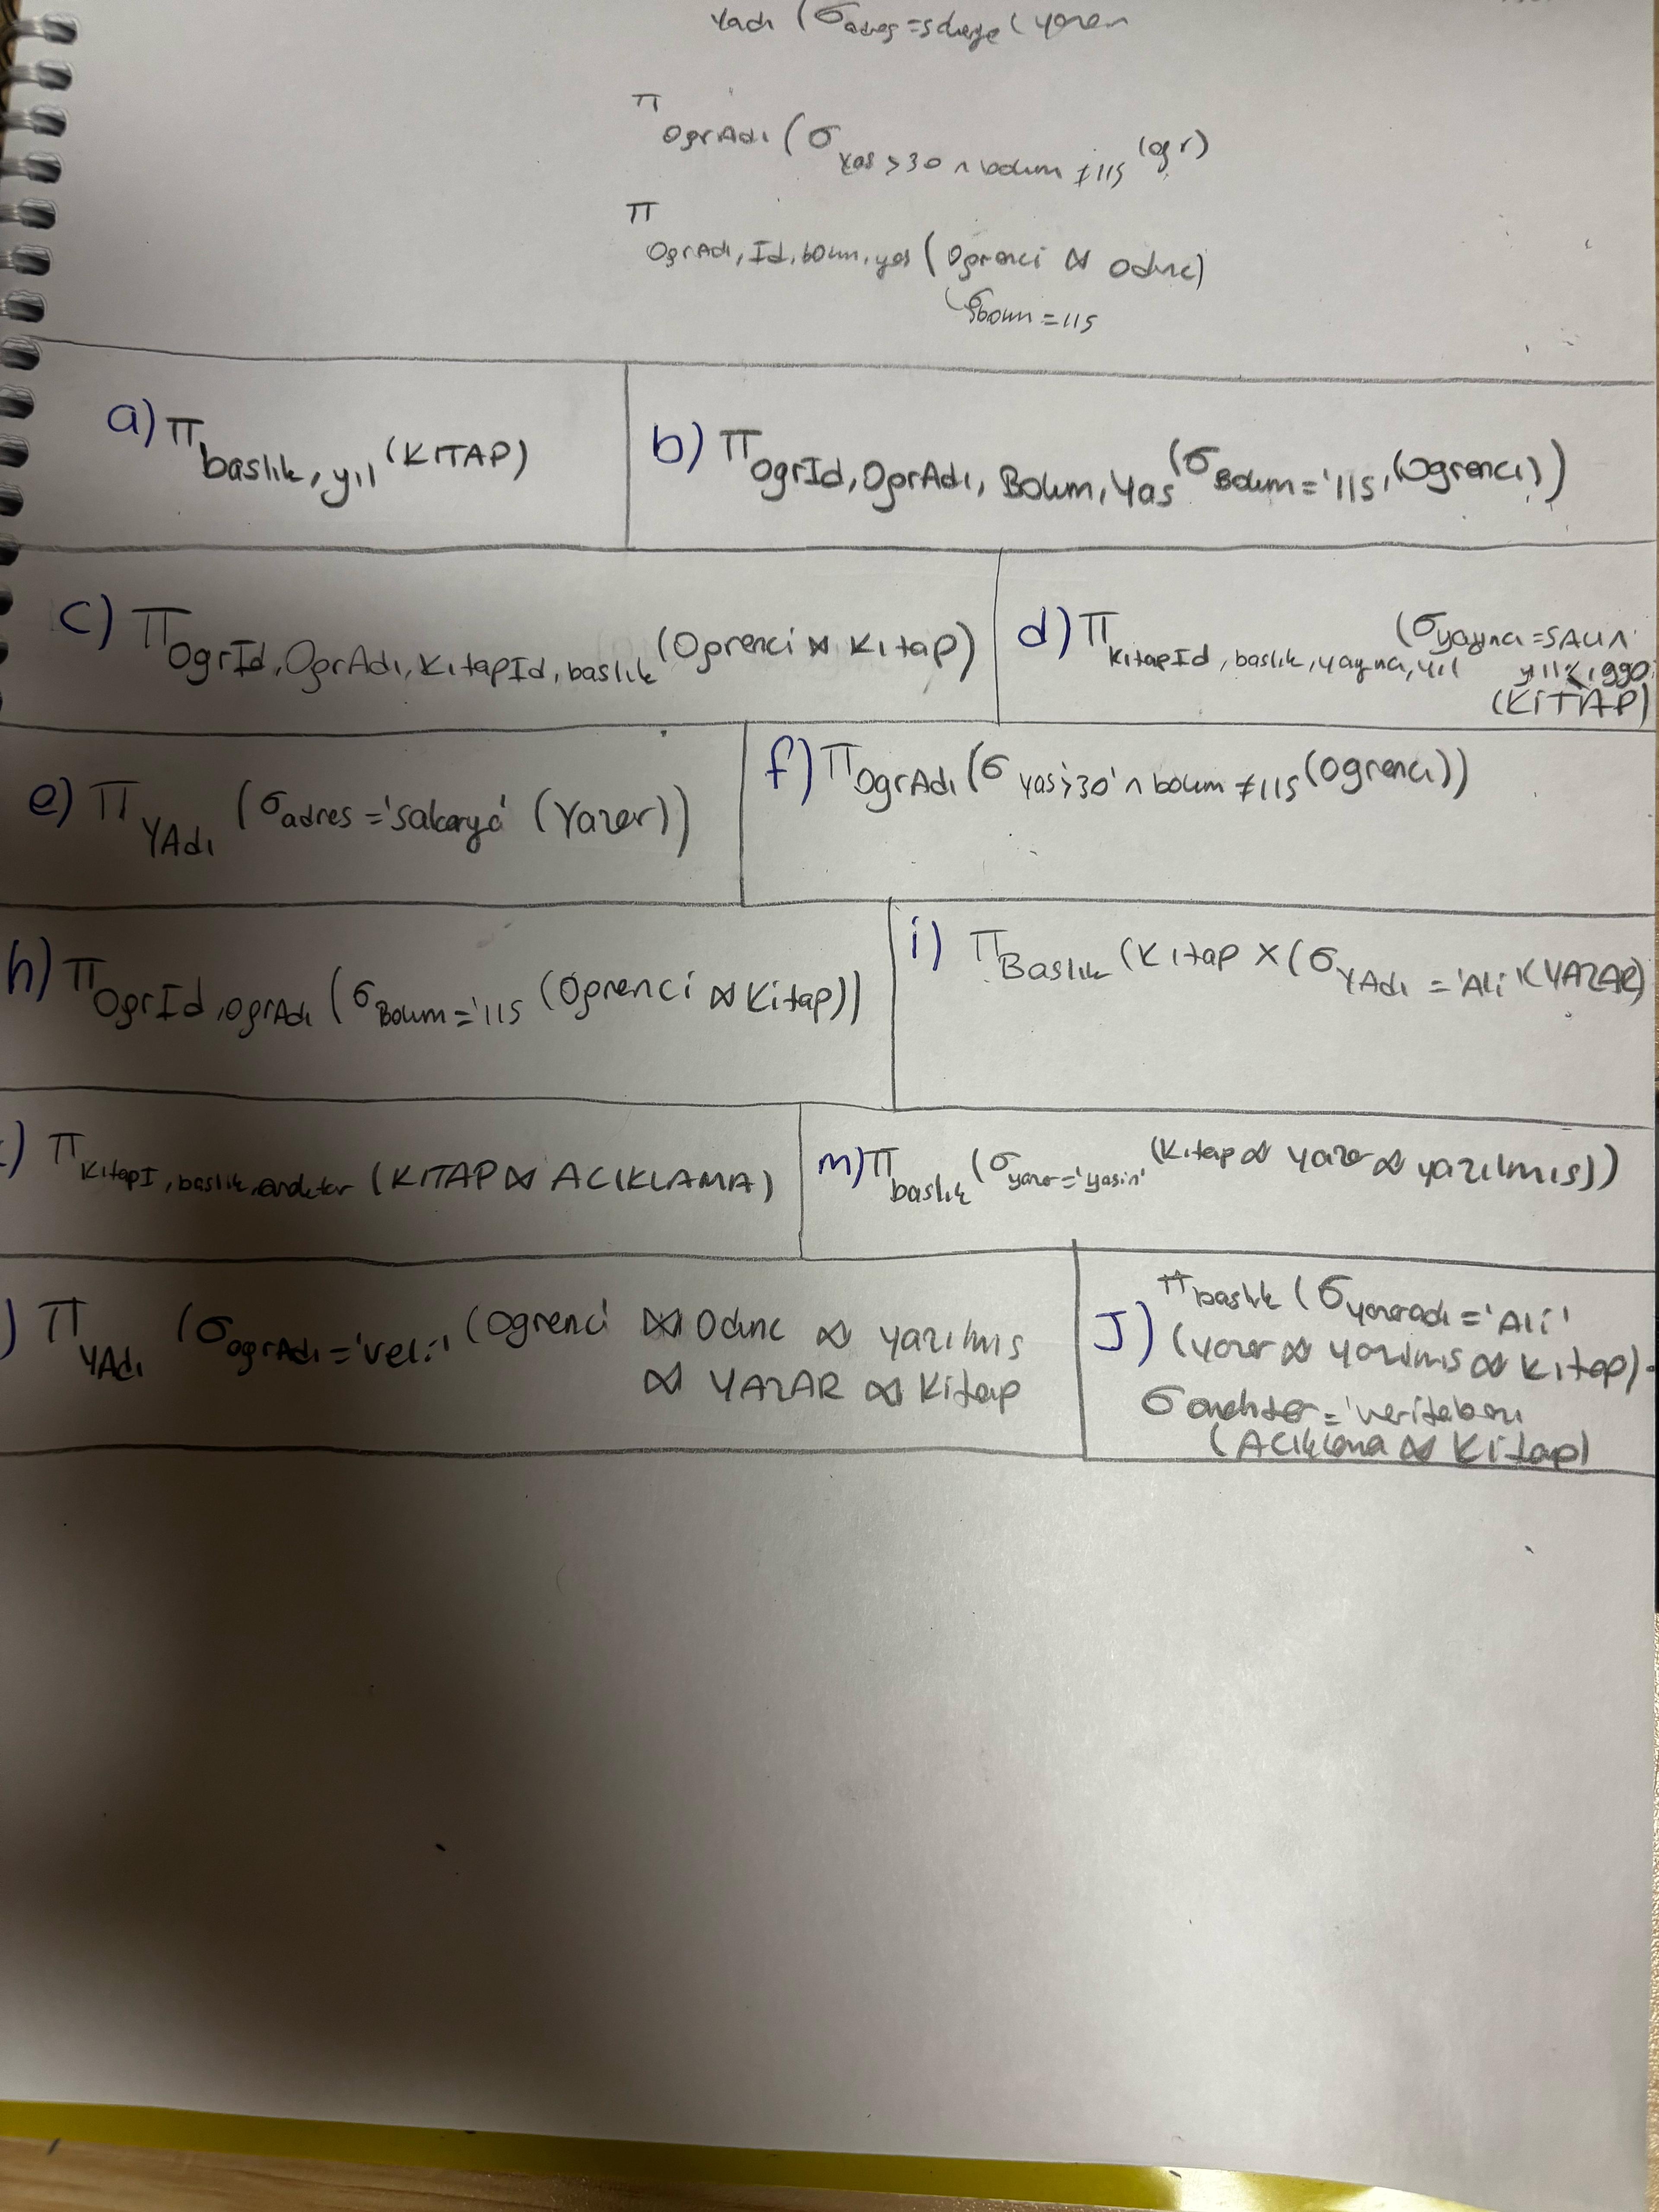 YAdı (σ adres =
π OgrAdı (σ yas >30 ∧ bolum ≠115 (ogr)
π OgrAdı, Id, bolum, yas (Ogrenci ⋈ odunc)
σ bolum = 115
a) π baslık, yıl (KITAP)
b) π OgrId, OgrAdı, Bolum, Yas (σ Bolum = '115' (Ogrenci))
c) π OgrId, OgrAdı, KitapId, baslık (Ogrenci ⋈ Kitap)
d) π KitapId, baslık, yayıncı, yıl (σ yayıncı = SAU ∧
yıl < 1990
(KİTAP)
e) π YAdı (σ adres = 'sakarya' (Yazar))
f) π OgrAdı (σ yas '>30' ∧ bolum ≠115 (Ogrenci))
h) π OgrId, OgrAdı (σ Bolum = '115 (Ogrenci ⋈ Kitap))
i) π Baslık (Kitap X (σ YAdı = 'Ali' (YAZAR)
) π KitapI, baslık, anahtar (KITAP ⋈ ACIKLAMA)
m) π baslık (σ yazar = 'yasin' (Kitap ⋈ yazar ⋈ yazılmıs))
) π YAdı (σ ogrAdı = 'veli' (Ogrenci ⋈ Odunc ⋈ yazılmıs
⋈ YAZAR ⋈ Kitap
J) π baslık (σ yazaradı = 'Ali'
(yazar ⋈ yazılmıs ⋈ kitap) -
σ anahtar = 'veritabanı
(Acıklama ⋈ Kitap)